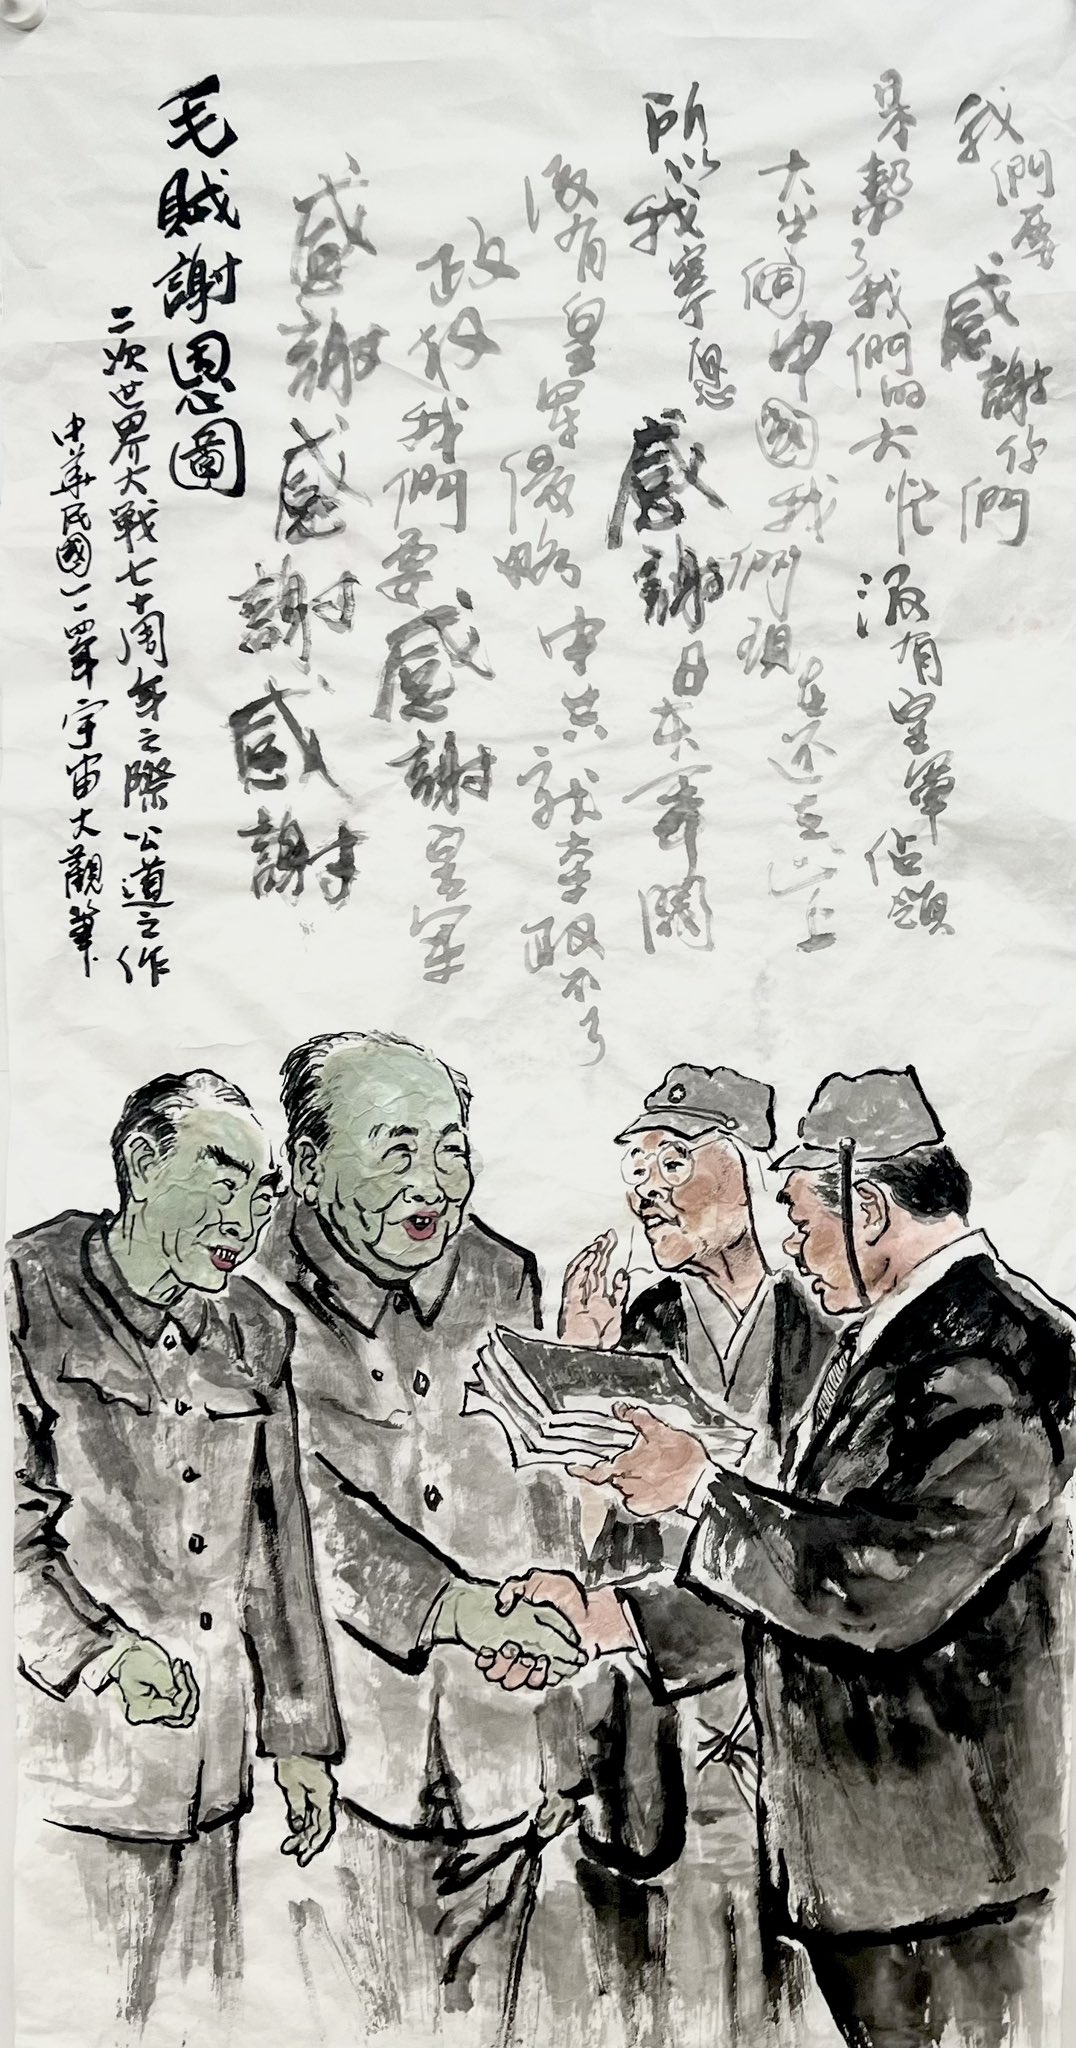 我們要感謝你們
是幫了我們的大忙沒有皇軍佔領
大半個中國我們現在还在山上
所以我寧愿感謝日本軍閥
沒有皇軍侵略中共就奪取不了
政权我們要感謝皇军
感謝感謝感謝
毛賊謝恩圖
二次世界大戰七十周年之際公道之作
中華民國一一四年宇宙大觀筆